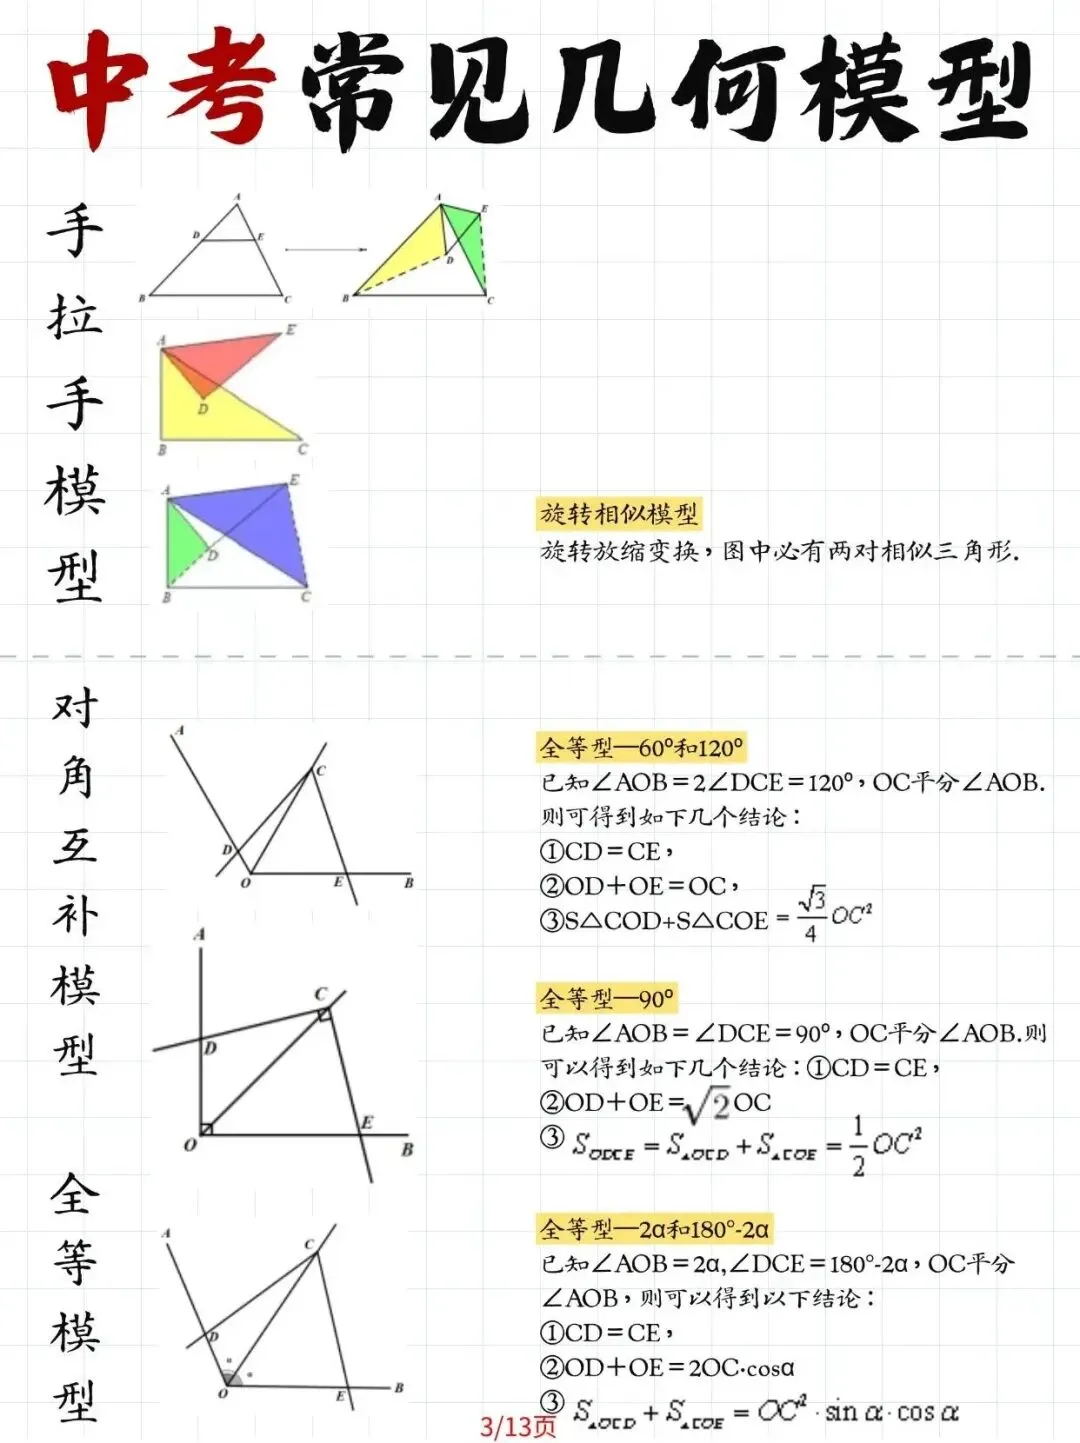 中考常见几何模型
手拉手模型
A
D
E
B
C
A
E
D
B
C
A
E
D
B
C
A
E
D
B
C
旋转相似模型
旋转放缩变换，图中必有两对相似三角形.
对角互补模型
全等模型
A
C
D
O
E
B
全等型—60°和120°
已知∠AOB＝2∠DCE＝120°，OC平分∠AOB.
则可得到如下几个结论：
①CD＝CE，
②OD＋OE＝OC，
③S△COD+S△COE = √3/4 OC²
A
C
D
O
E
B
全等型—90°
已知∠AOB＝∠DCE＝90°，OC平分∠AOB.则
可以得到如下几个结论：①CD＝CE，
②OD＋OE＝√2 OC
③ S_ODCE = S_△OCD + S_△COE = 1/2 OC²
A
C
D
α
α
O
E
B
全等型—2α和180°-2α
已知∠AOB＝2α,∠DCE＝180°-2α，OC平分
∠AOB，则可以得到以下结论：
①CD＝CE，
②OD＋OE＝2OC·cosα
③ S_△OCD + S_△COE = OC²·sin α·cos α
3/13页